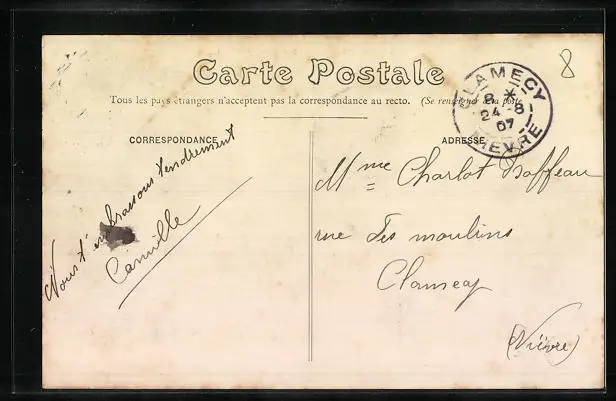 8
Carte Postale
Tous les pays étrangers n'acceptent pas la correspondance au recto. (Se renseigner à la poste
CLAMECY
8 *
24 -8
07
NIEVRE
CORRESPONDANCE
ADRESSE
Nous t'embrassons tendrement
Camille
Mme Charlot
rue des moulins
Clamecy
(Nièvre)